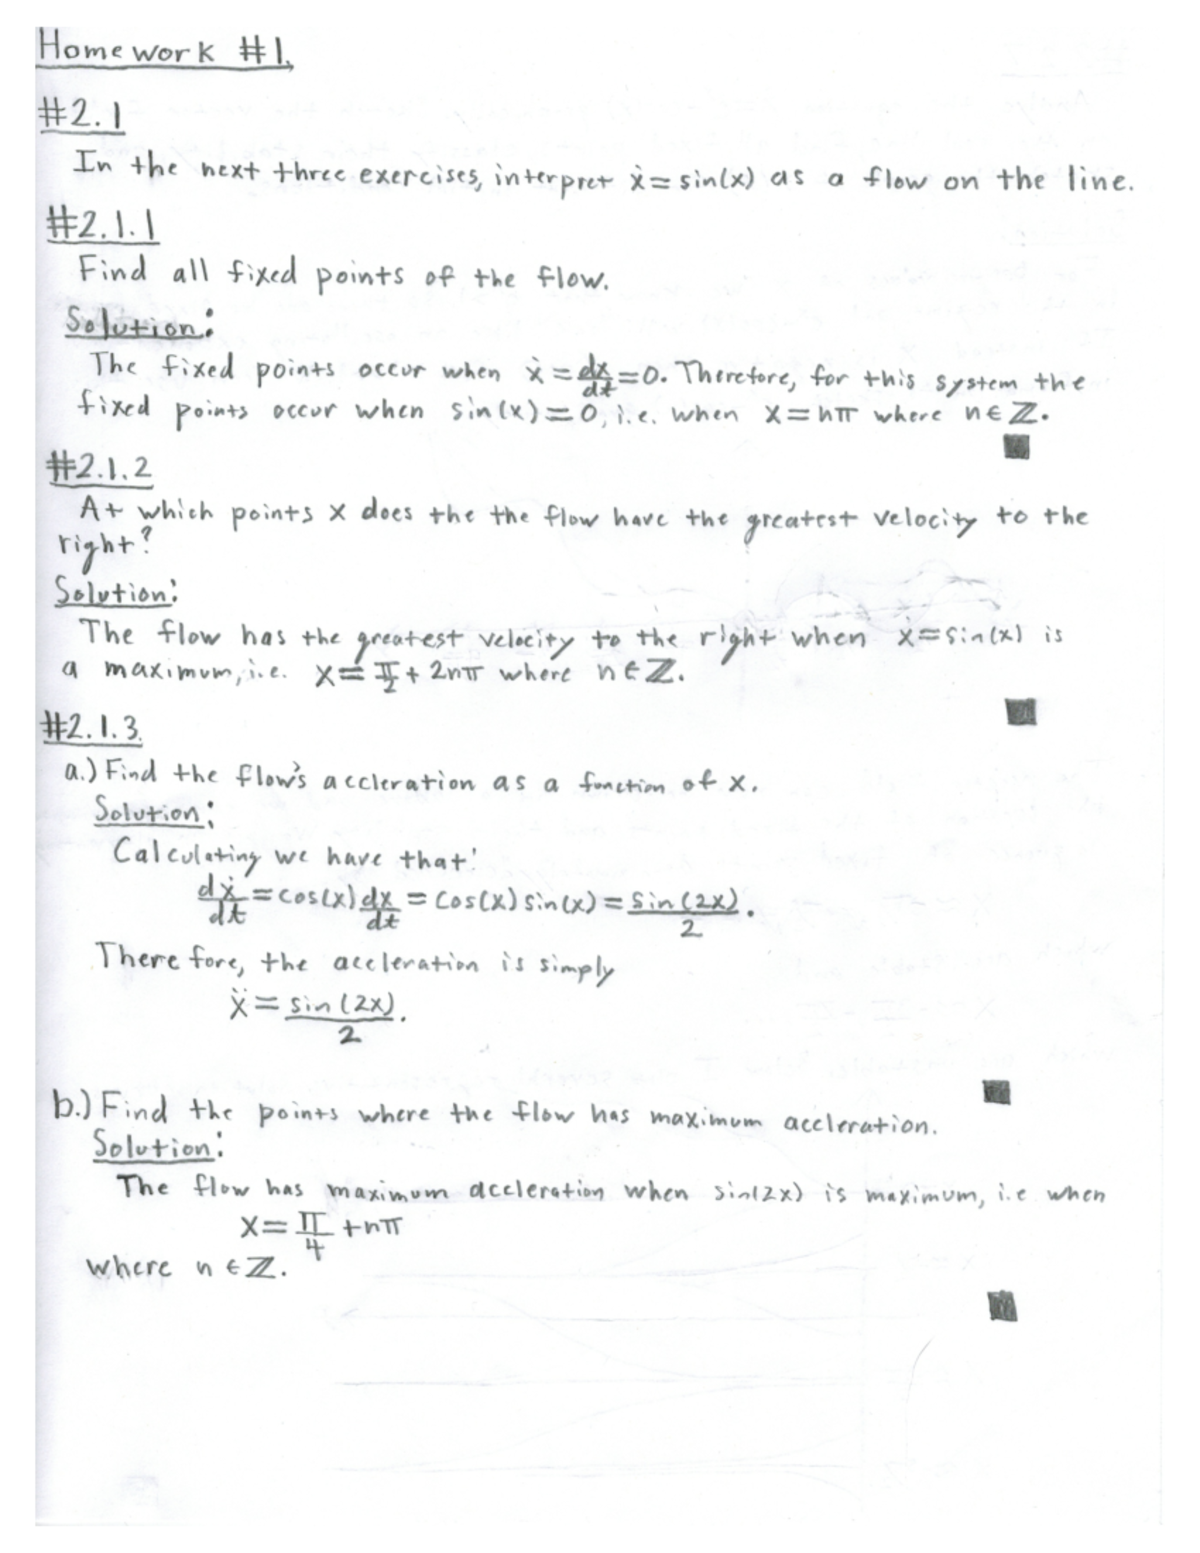 Homework #1.
#2.1
In the next three exercises, interpret ẋ = sin(x) as a flow on the line.
#2.1.1
Find all fixed points of the flow.
Solution:
The fixed points occur when ẋ = dx/dt = 0. Therefore, for this system the
fixed points occur when sin(x) = 0, i.e. when x = nπ where n ∈ ℤ.
#2.1.2
At which points x does the the flow have the greatest velocity to the
right?
Solution:
The flow has the greatest velocity to the right when ẋ = sin(x) is
a maximum, i.e. x = π/2 + 2nπ where n ∈ ℤ.
#2.1.3.
a.) Find the flow's accleration as a function of x.
Solution:
Calculating we have that:
dẋ/dt = cos(x) dx/dt = cos(x) sin(x) = sin(2x)/2.
Therefore, the accleration is simply
ẍ = sin(2x)/2.
b.) Find the points where the flow has maximum accleration.
Solution:
The flow has maximum accleration when sin(2x) is maximum, i.e when
x = π/4 + nπ
where n ∈ ℤ.